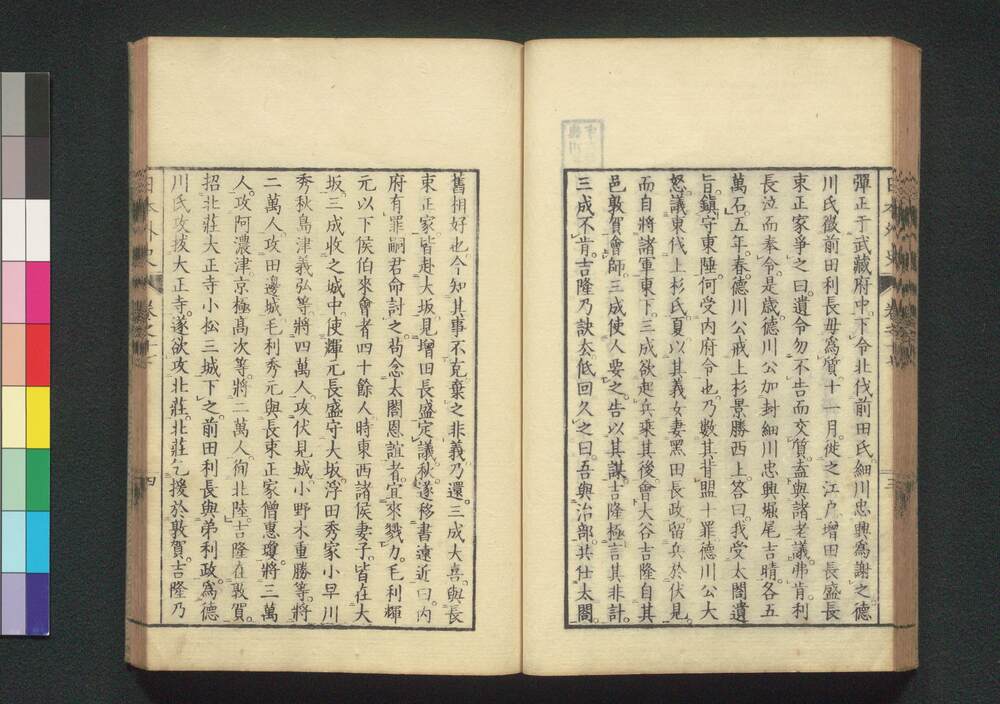 彈正于武藏府中。下令北伐前田氏。細川忠興爲謝之德
川氏。徵前田利長母爲質。十一月。徙之江戶。增田長盛長
束正家爭之曰。遺令勿不告而交質。盍與諸老議。弗肯。利
長泣而奉令。是歲。德川公加封細川忠興堀尾吉晴。各五
萬石。五年。春。德川公戒上杉景勝西上。答曰。我受太閤遺
旨。鎭守東陲。何受內府令也。乃數其背盟十罪。德川公大
怒。議東伐上杉氏。夏。以其義女妻黑田長政。留兵於伏見。
而自將諸軍東下。三成欲起兵乘其後。會大谷吉隆自其
邑敦賀會師。三成使人要之。告以其謀。吉隆極言其非計。
三成不肯。吉隆乃訣去。低回久之曰。吾與治部共仕太閤。
舊相好也。今知其事不克。棄之非義。乃還。三成大喜。與長
束正家。皆赴大坂。見增田長盛定議。秋。遂移書遠近曰。內
府有罪。嗣君命討之。苟念太閤恩誼者。宜來戮力。毛利輝
元以下侯伯來會者四十餘人。時東西諸侯妻子。皆在大
坂。三成收之城中。使輝元長盛守大坂。浮田秀家小早川
秀秋島津義弘等。將四萬人。攻伏見城。小野木重勝等。將
二萬人。攻田邊城。毛利秀元與長束正家僧惠瓊。將三萬
人。攻阿濃津。京極高次等。將二萬人。徇北陸。吉隆在敦賀。
招北莊大正寺小松三城下之。前田利長與弟利政。爲德
川氏攻拔大正寺。遂欲攻北莊。北莊乞援於敦賀。吉隆乃
四